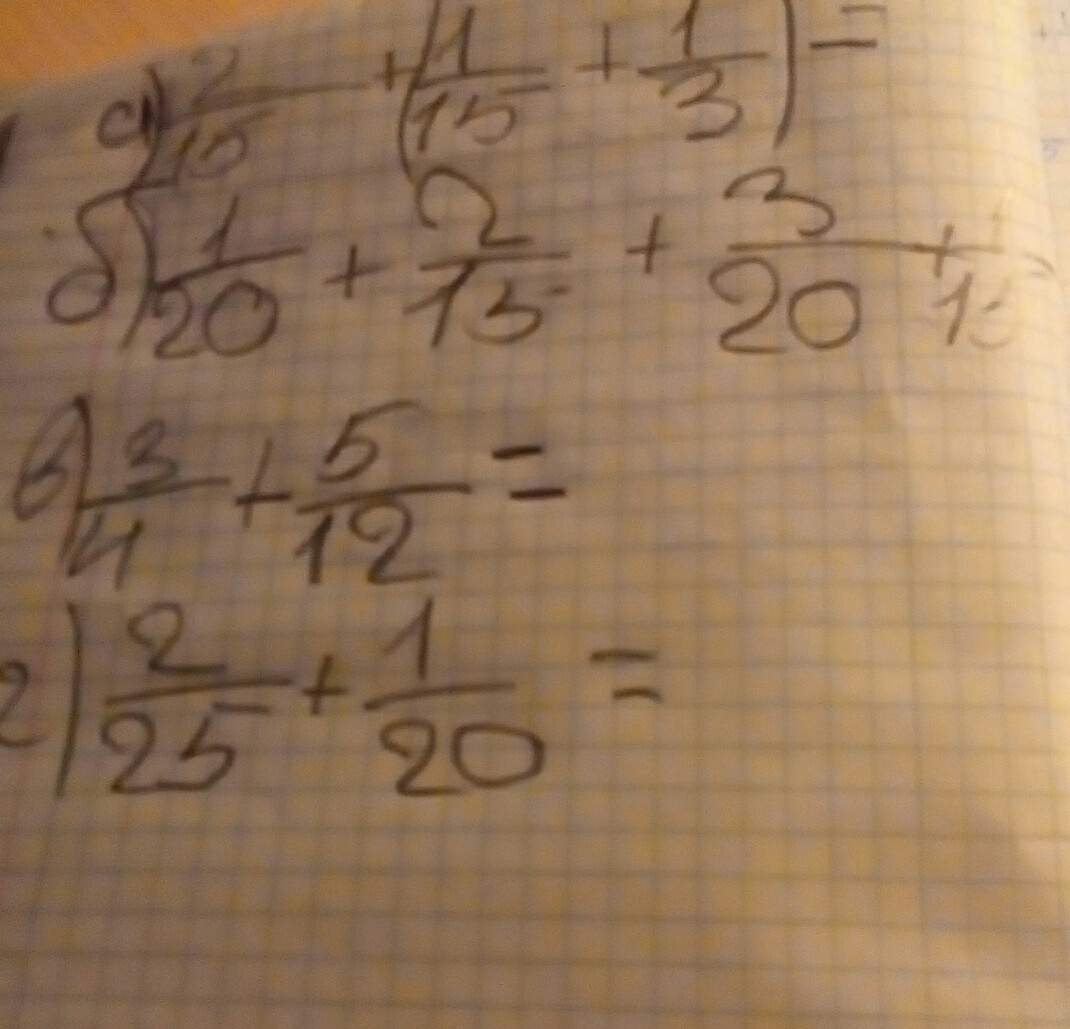 а) 2/15 + (1/15 + 1/3) =
б) 1/20 + 2/15 + 3/20 +
в) 3/4 + 5/12 =
г) 2/25 + 1/20 =